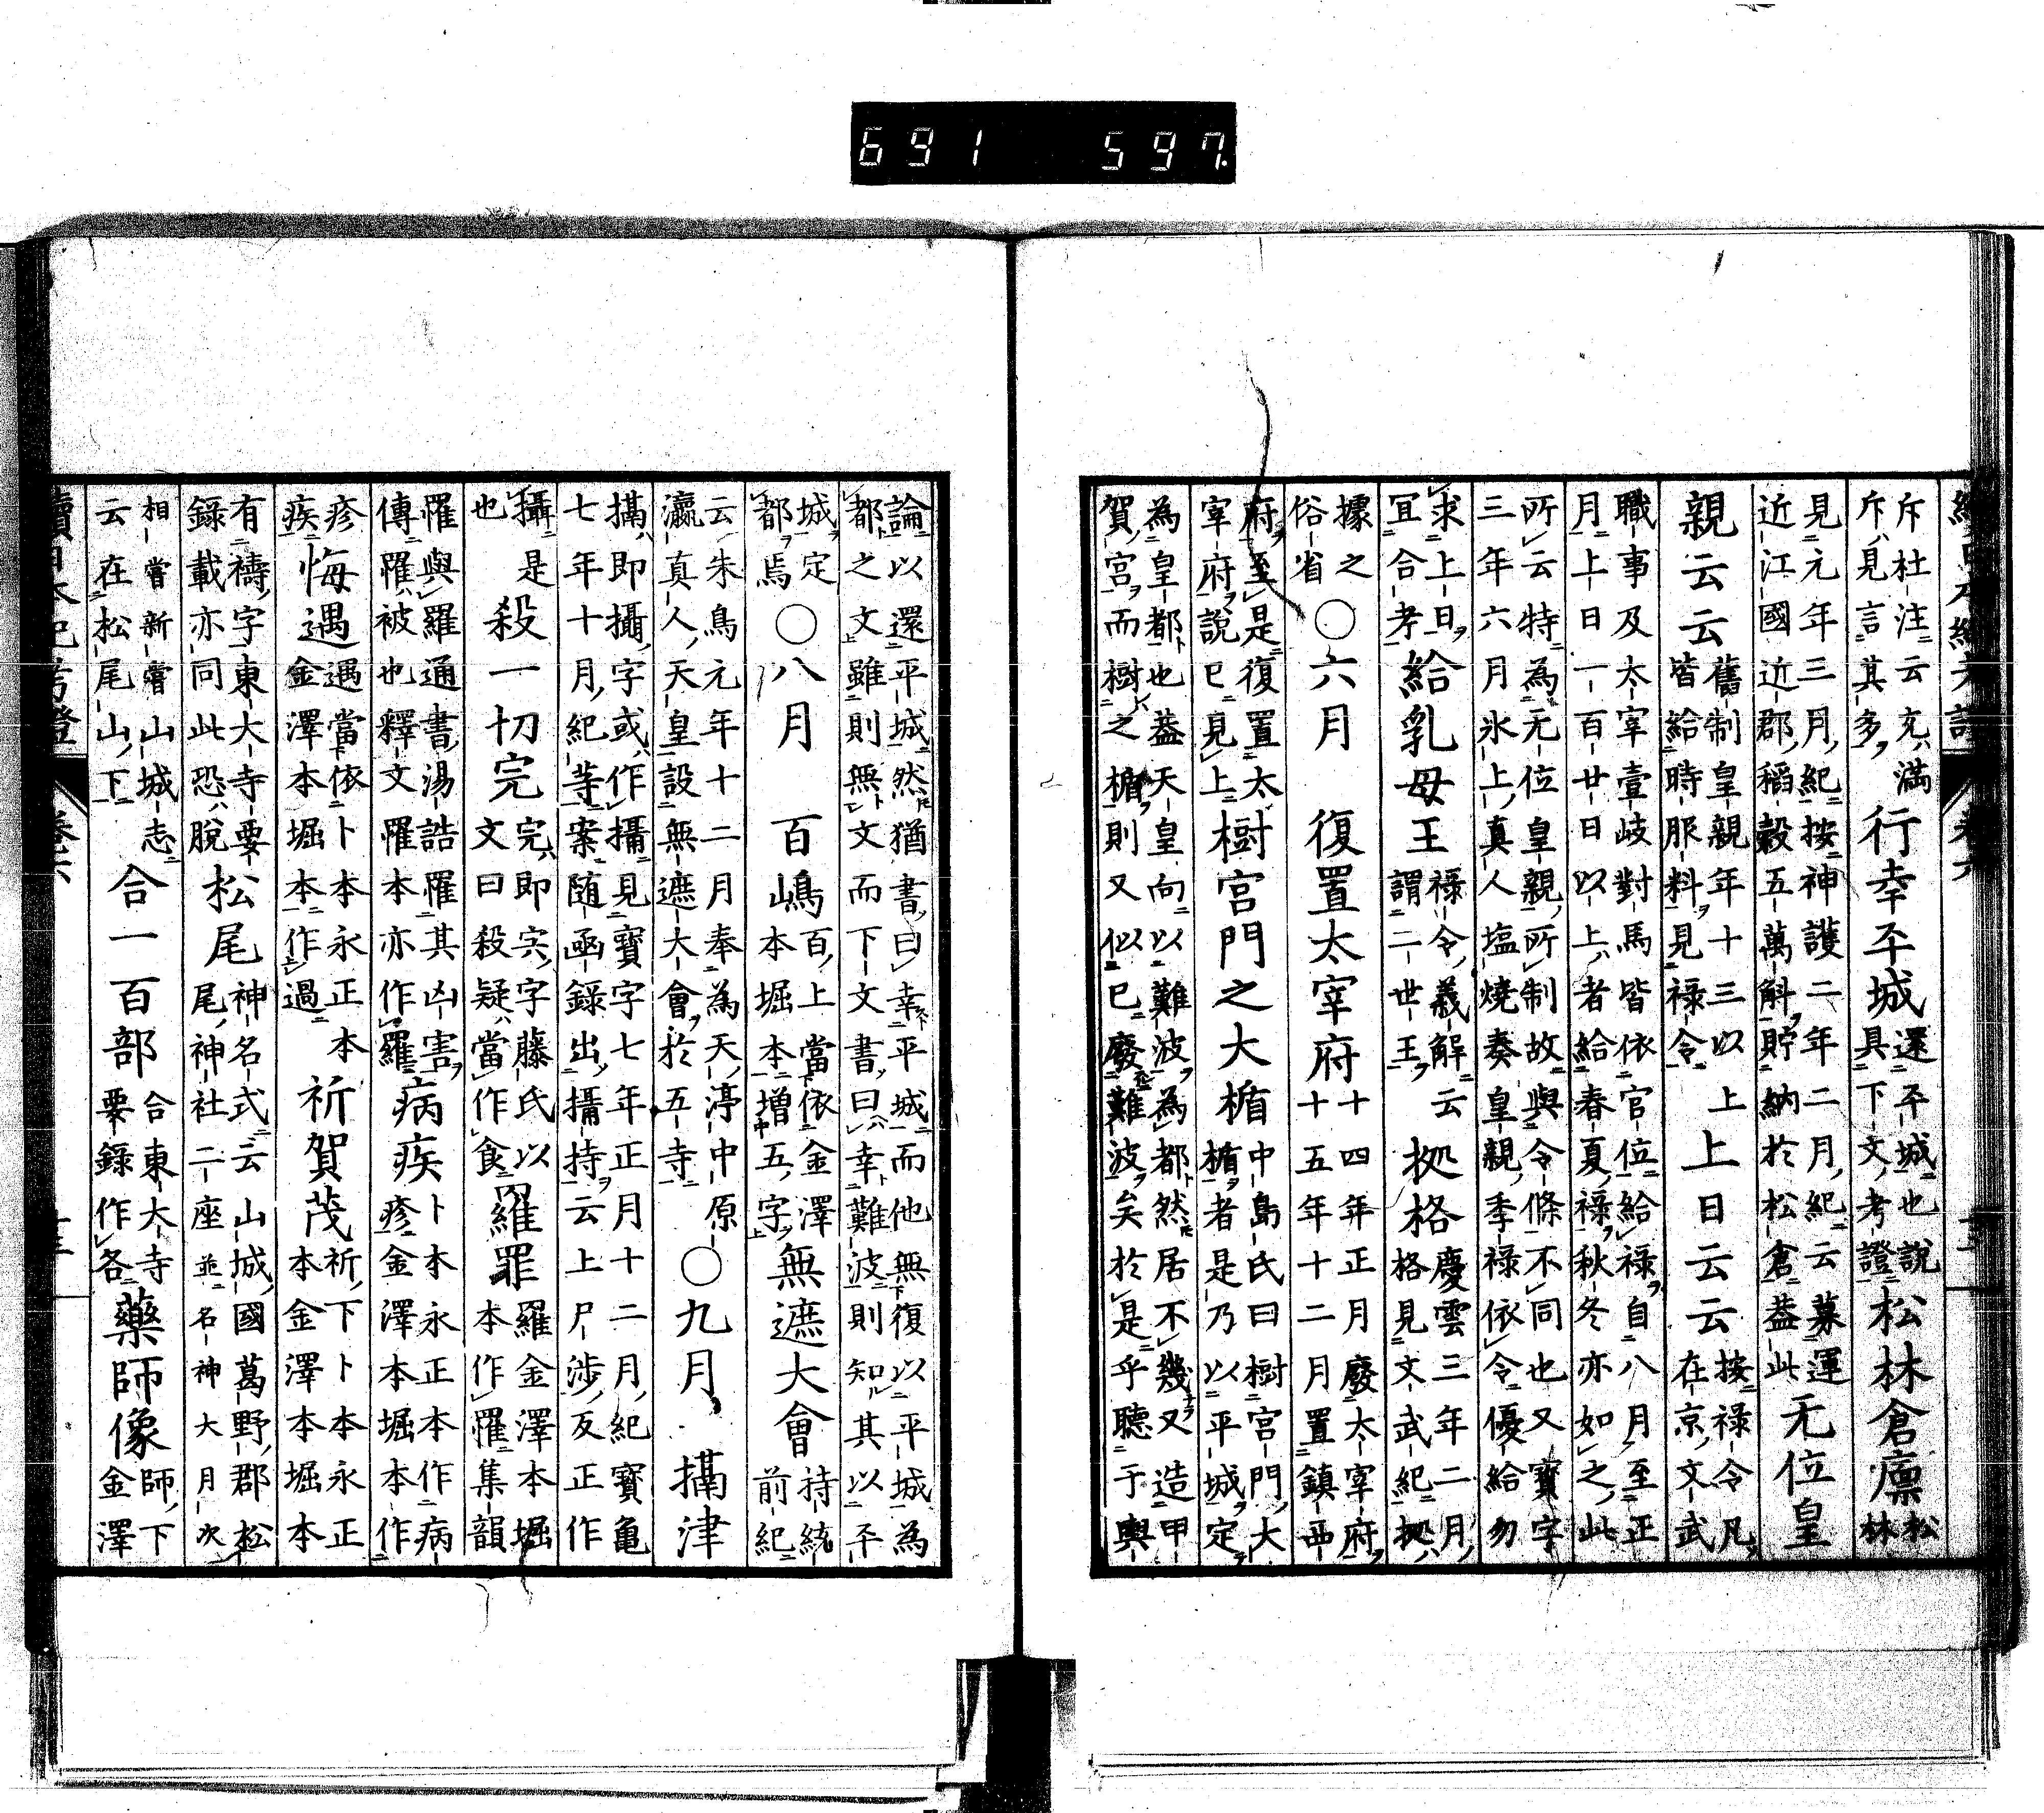 691 597.
斥杜注云充滿
斥見言其多
行幸平城
還平城也說
具下文考證
松林倉廩
松
林
見元年三月紀按神護二年二月紀云募運
近江國近郡稻穀五萬斛貯納於松倉蓋此
无位皇
親云云
舊制皇親年十三以上
皆給時服料見祿令
上日云云
按祿令凡
在京文武
職事及太宰壹岐對馬皆依官位給祿自八月至正
月上日一百廿日以上者給春夏祿秋冬亦如之此
所云特為无位皇親所制故與令條不同也又寶字
三年六月氷上真人塩燒奏皇親季祿依令優給勿
求上日
宜合考
給乳母王
祿令義解云
謂二世王
拠格
慶雲三年二月
格見文武紀拠
據之
俗省
○六月 復置太宰府
十四年正月廢太宰府
十五年十二月置鎮西
府至是復置太
宰府說已見上
樹宮門之大楯
中島氏曰樹宮門大
楯者是乃以平城定
為皇都也蓋天皇向以難波為都然居不幾又造甲
賀宮而樹之楯則又似已廢難波矣於是乎聽于輿
論以還平城然猶書曰幸平城而他無復以平城為
都之文雖則無文而下文書曰幸難波則知其以平
城定
都焉
○八月 百嶋
百上當依金澤
本堀本增五字
無遮大會
持統
前紀
云朱鳥元年十二月奉為天渟中原
瀛真人天皇設無遮大會於五寺
○九月 㨫津
㨫即攝字或作攝見寶字七年正月十二月紀寶龜
七年十月紀等案随函錄出攝持云上尸涉反正作
攝
也
是殺一切完
完即宍字藤氏以
文曰殺疑當作食
羅罪
羅金澤本堀
本作罹集韻
罹與羅通書湯誥罹其凶害
傳罹被也釋文罹本亦作羅
病疾
卜本永正本作病
疹金澤本堀本作
疹
疾
悔過
過當依卜本永正本
金澤本堀本作過
祈賀茂
祈下卜本永正
本金澤本堀本
有禱字東大寺要
錄載亦同此恐脫
松尾
神名式云山城國葛野郡松
尾神社二座並名神大月次
相嘗新嘗山城志
云在松尾山下
合一百部
合東大寺
要錄作各
藥師像
師下
金澤
續日本紀考證 卷六